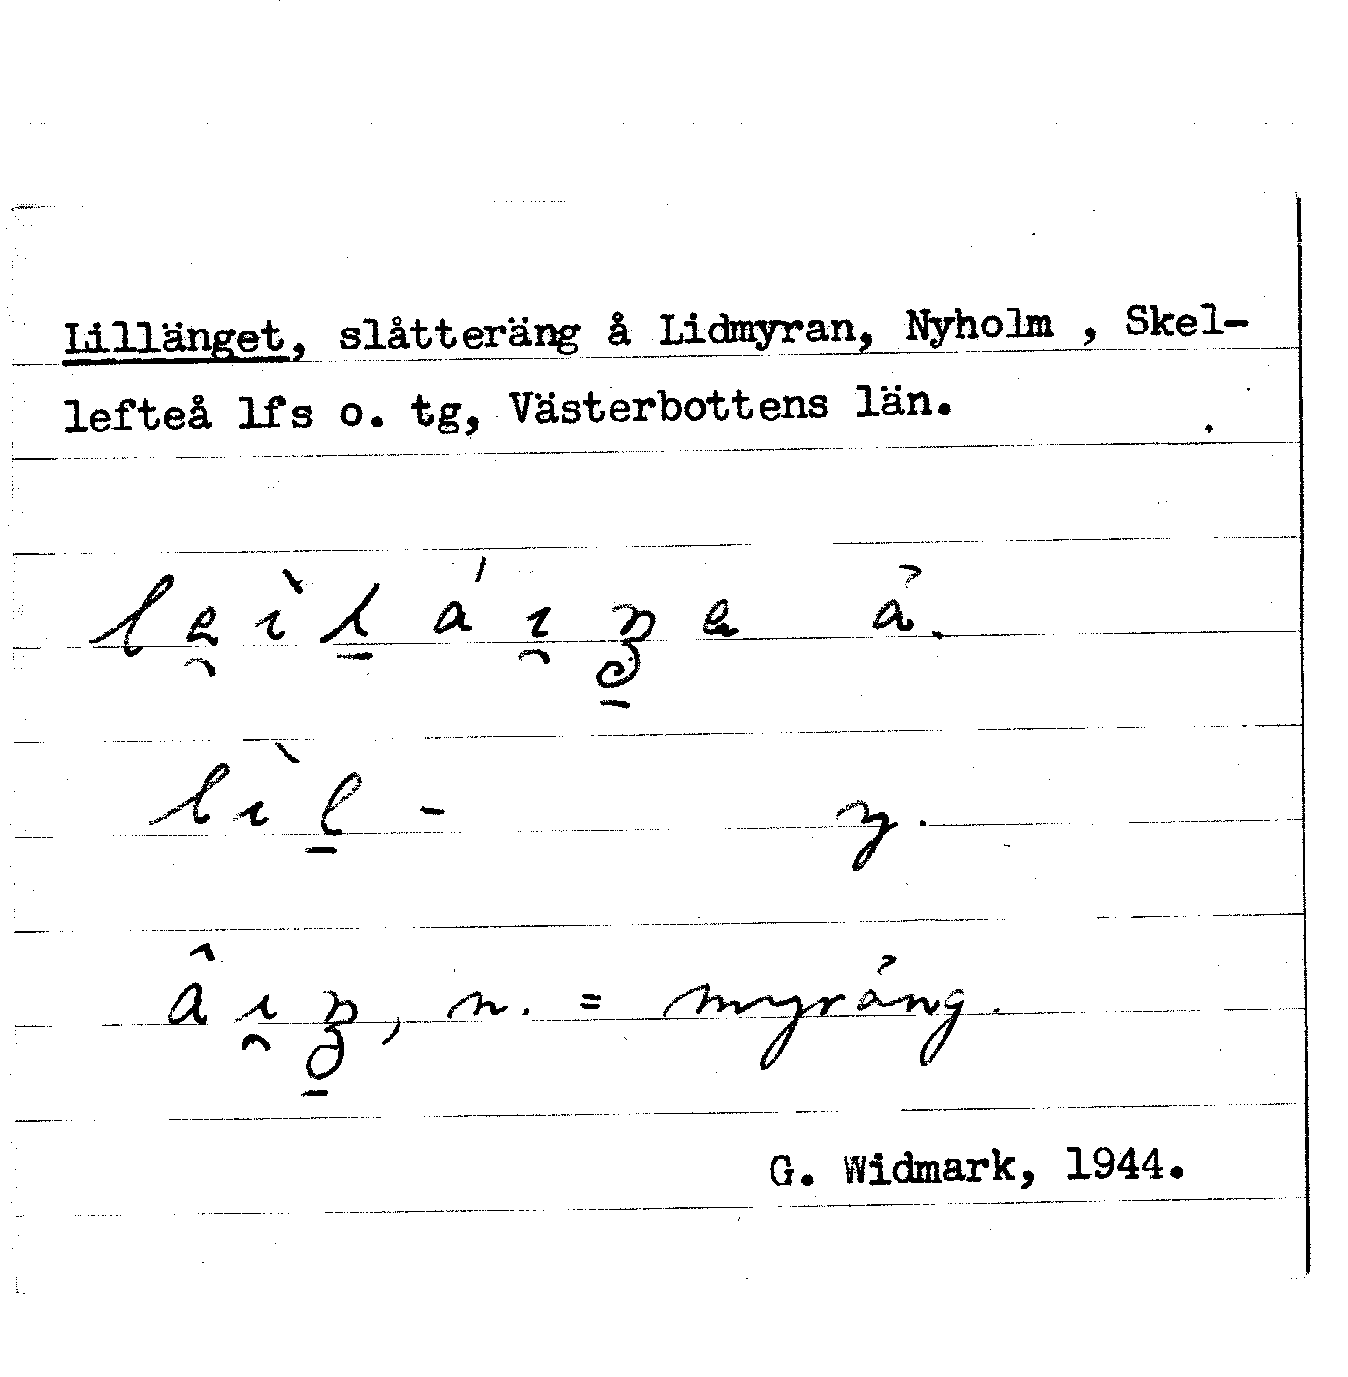 Lillänget, slåtteräng å Lidmyran, Nyholm , Skel-
lefteå lfs o. tg, Västerbottens län.
å.
lìl̲ - y.
n. = myräng.
G. Widmark, 1944.